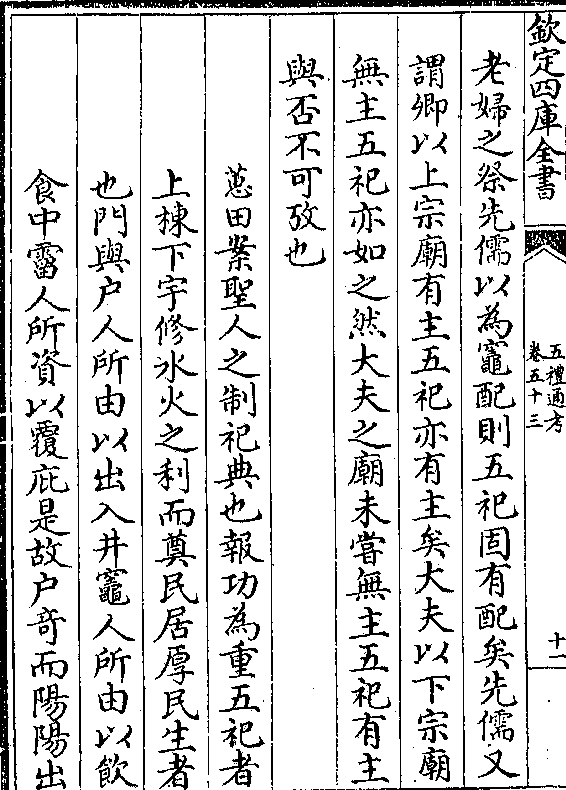 欽定四庫全書
五禮通考
卷五十三
十一
老婦之祭先儒以為竈配則五祀固有配矣先儒又
謂卿以上宗廟有主五祀亦有主矣大夫以下宗廟
無主五祀亦如之然大夫之廟未嘗無主五祀有主
與否不可攷也
蕙田案聖人之制祀典也報功為重五祀者
上棟下宇修水火之利而奠民居厚民生者
也門與户人所由以出入井竈人所由以飲
食中霤人所資以覆庇是故户竒而陽陽出